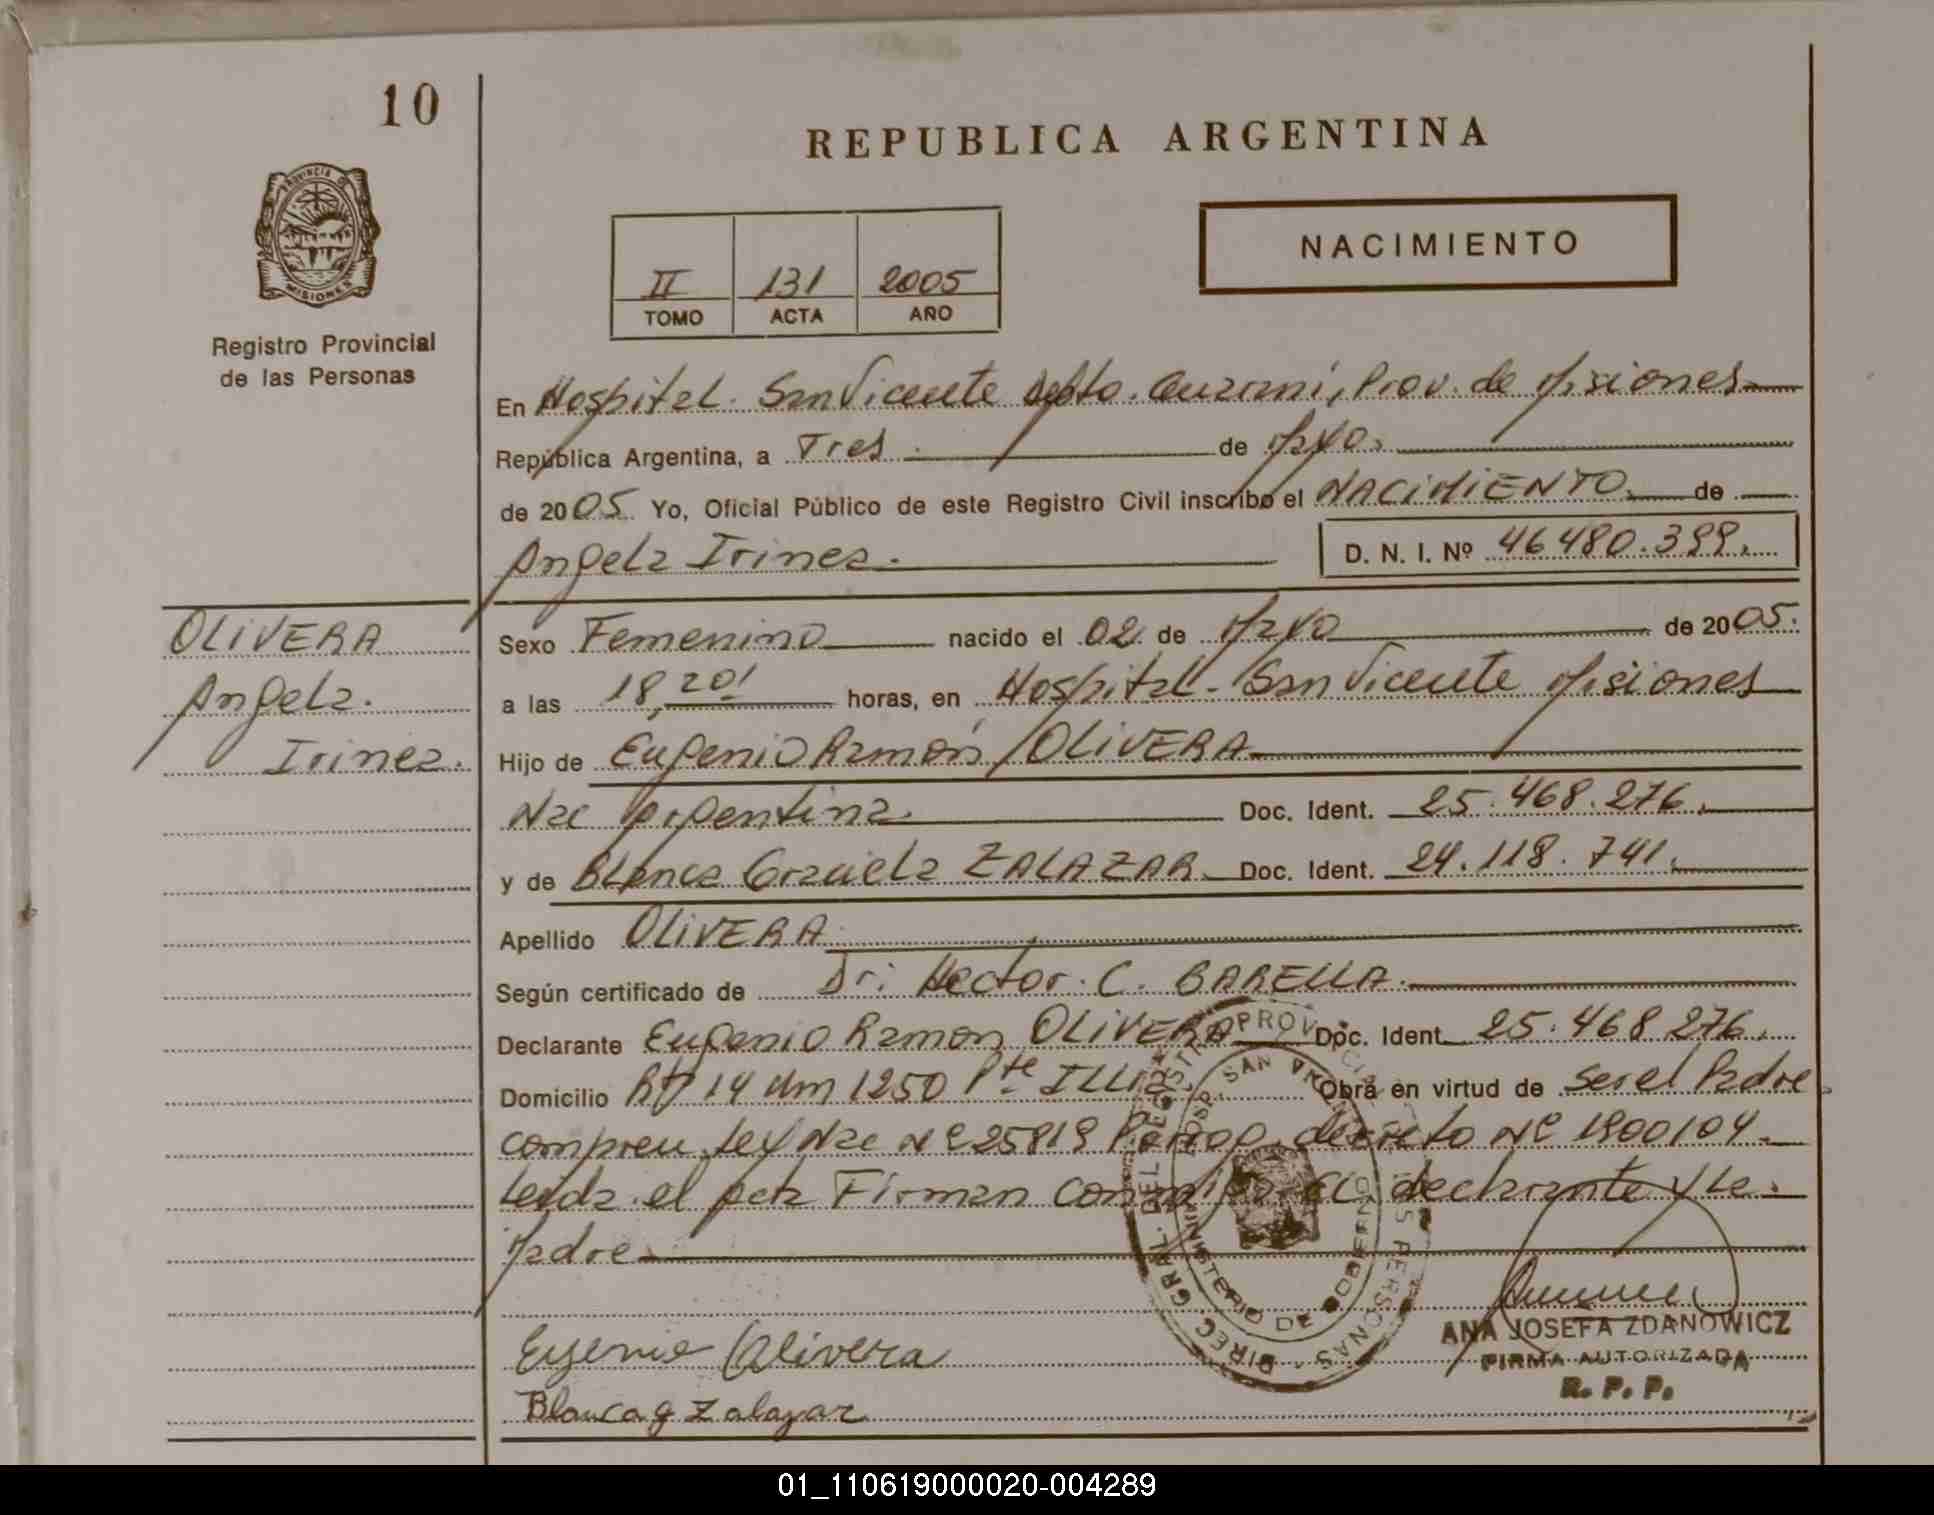 10
REPUBLICA ARGENTINA
PROVINCIA DE
MISIONES
NACIMIENTO
II 131 2005
TOMO ACTA AÑO
Registro Provincial
de las Personas
En Hospital. San Vicente Depto. Guarani, Prov. de Misiones
República Argentina, a Tres de Mayo.
de 2005. Yo, Oficial Público de este Registro Civil inscribo el NACiMiENTO de
Angela Irinea. D. N. I. Nº 46480.399.
OLiVERA
Angela.
Irinea.
Sexo Femenino nacido el 02 de Mayo de 2005.
a las 18,20' horas, en Hospital - San Vicente Misiones
Hijo de Eugenio Ramón OLiVERA
Nac Argentina. Doc. Ident. 25.468.276.
y de Blanca Graciela ZALAZAR Doc. Ident. 24.118.741.
Apellido OLiVERA
Según certificado de Dr: Hector. C. BARELLA.
Declarante Eugenio Ramon OLiVERA Doc. Ident. 25.468.276.
Domicilio Rta 14 Km 1250 Pte ILLia Obra en virtud de ser el Padre
Ley Nac Nº 25819 decreto Nº 1900/04.
Leida el Acta Firman Conmigo el declarante y la
Madre
DIREC. GRAL. DEL REGISTRO PROVINCIAL DE LAS PERSONAS
HOSP. SAN VICENTE
MINISTERIO DE GOBIERNO
Eugenio Olivera
ANA JOSEFA ZDANOWICZ
FIRMA AUTORIZADA
R. P. P.
Blanca g Zalazar
01_110619000020-004289